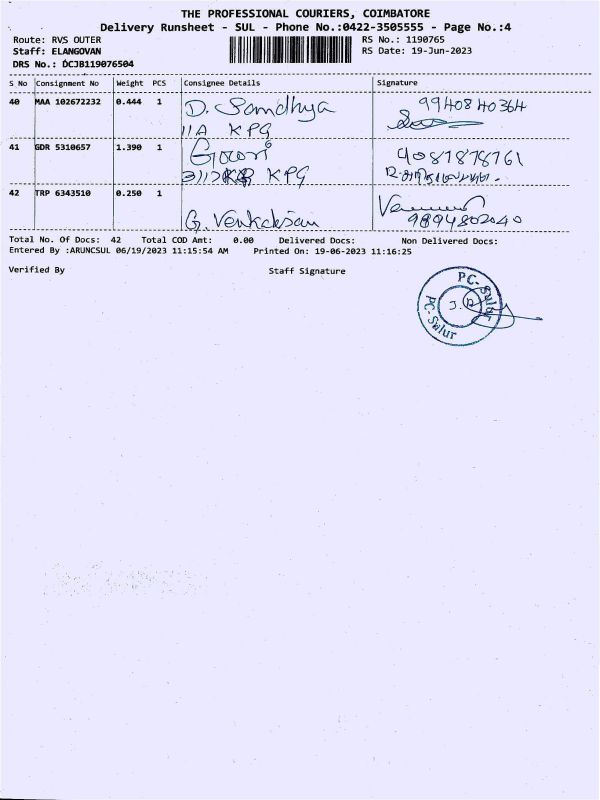 THE PROFESSIONAL COURIERS, COIMBATORE
Delivery Runsheet - SUL - Phone No.:0422-3505555 - Page No.:4
Route: RVS OUTER RS No.: 1190765
Staff: ELANGOVAN RS Date: 19-Jun-2023
DRS No.: DCJB119076504
S No Consignment No Weight PCS Consignee Details Signature
40 MAA 102672232 0.444 1 D. Sandhya 9940840364
11A KPG
41 GDR 5310657 1.390 1 Gowri 4087878761
KPG
42 TRP 6343510 0.250 1
G. Venkatesan 9894802040
Total No. Of Docs: 42 Total COD Amt: 0.00 Delivered Docs: Non Delivered Docs:
Entered By :ARUNCSUL 06/19/2023 11:15:54 AM Printed On: 19-06-2023 11:16:25
Verified By Staff Signature
PC-Sulur
PC-Sulur